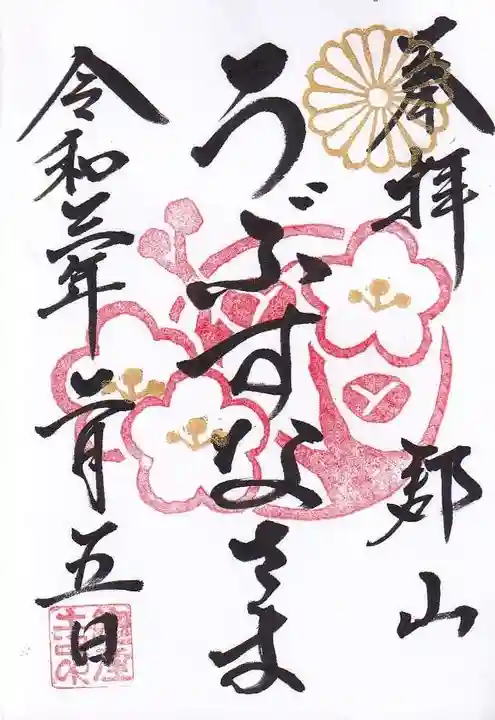 奉拝 郡山
うぶすなさま
令和三年二月五日